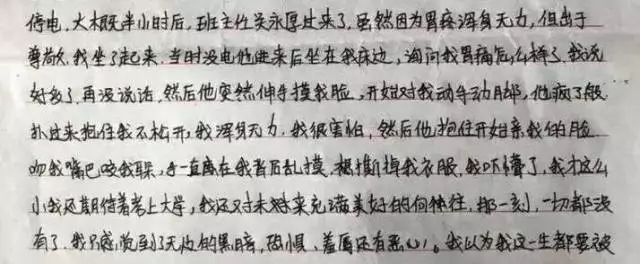 停电,大概半小时后,班主任吴永厚过来了,虽然因为胃疼浑身无力,但出于
尊敬,我坐了起来,当时没电他进来后坐在我床边,询问我胃痛怎么样了,我说
好多了,再没说话,然后他突然伸手摸我脸,开始对我动手动脚,他疯了般
扑过来抱住我不松开,我浑身无力,我很害怕,然后他抱住开始亲我的脸
吻我嘴巴咬我耳朵,手一直在我背后乱摸,想撕掉我衣服,我吓懵了,我才这么
小我还期待着考上大学,我还对未来充满美好的向往,那一刻,一切都没
有了,我只感觉到了无边的黑暗,恐惧、羞辱还有恶心,我以为我这一生都要被